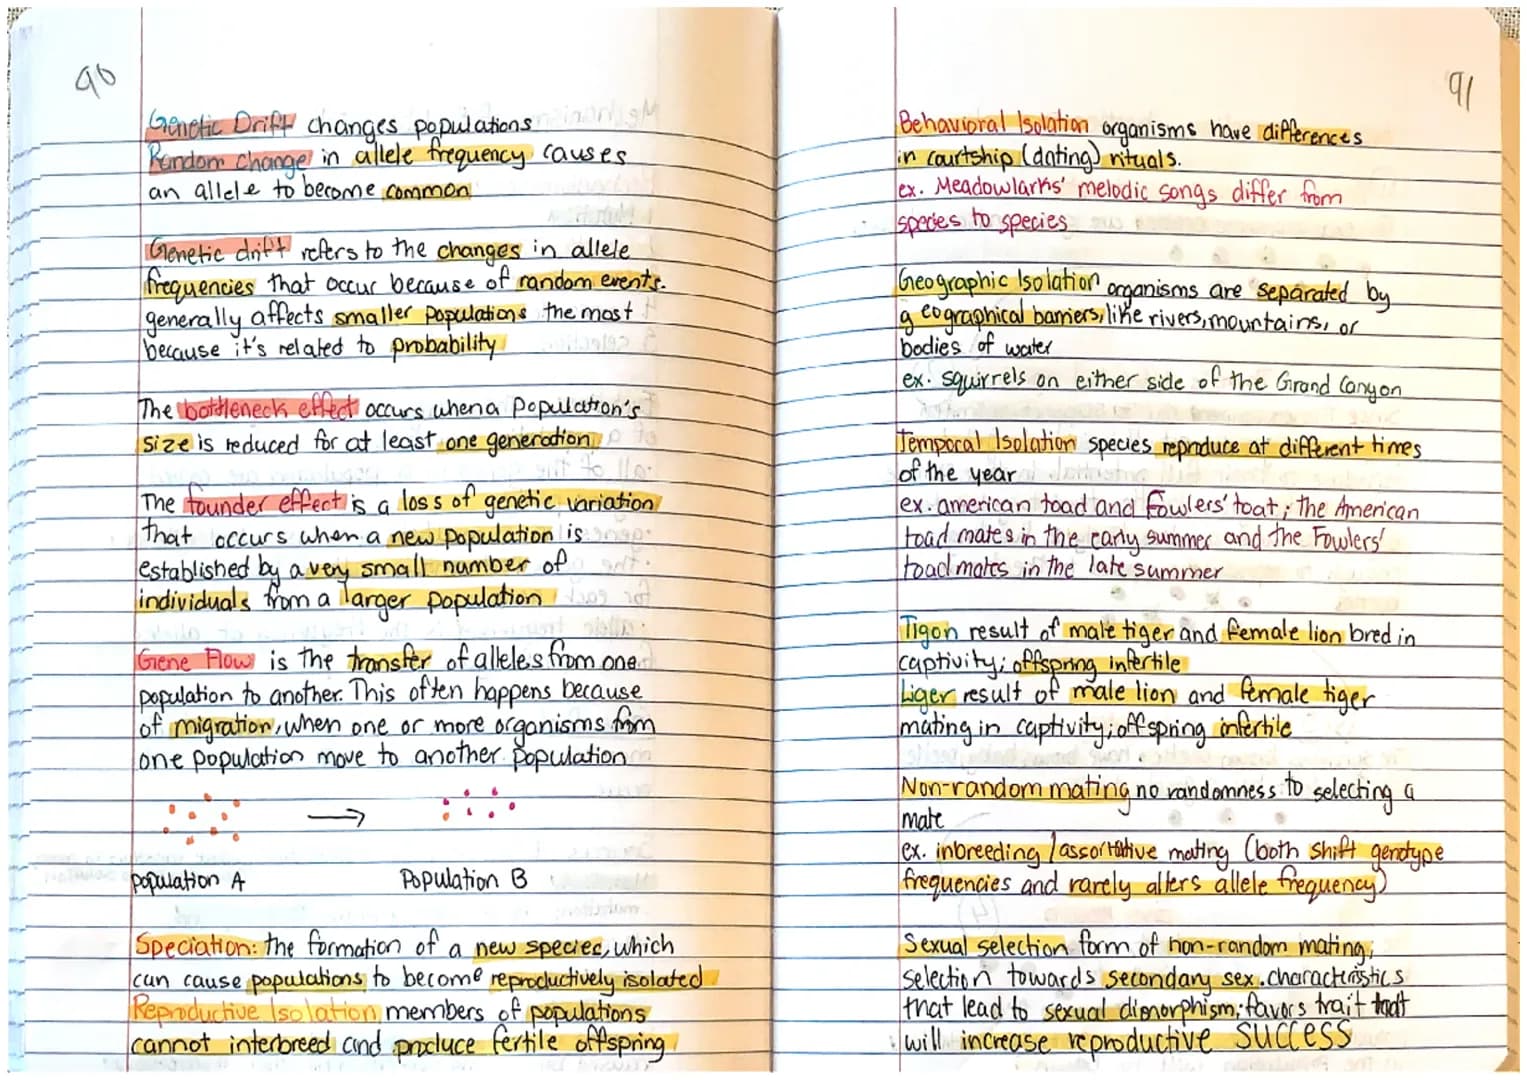 90
Genetic Drift changes populations
Random change in allele frequency causes
an allele to become common
Genetic drift refers to the changes in allele
frequencies that occur because of random events.
generally affects smaller populations the most
because it's related to probability
The bottleneck effect occurs when a population's
size is reduced for at least one generation
The founder effect is a loss of genetic variation
that occurs when a new population is
established by a very small number of
individuals from a larger population
Gene Flow is the transfer of alleles from one
population to another. This often happens because
of migration, when one or more organisms from
one population move to another population
population A
Population B
Speciation: the formation of a new species, which
can cause populations to become reproductively isolated
Reproductive Isolation members of populations
cannot interbreed and produce fertile offspring
91
Behavioral Isolation organisms have differences
in courtship (dating) rituals.
ex. Meadowlarks' melodic songs differ from
species to species
Geographic Isolation organisms are separated by
geographical barriers, like rivers, mountains, or
bodies of water
ex. squirrels on either side of the Grand Canyon
Temporal Isolation species reproduce at different times
of the year
ex. american toad and Fowlers' toat; the American
toad mates in the early summer and the Fowlers'
toad mates in the late summer
Tigon result of male tiger and female lion bred in
captivity; offspring infertile
Liger result of male lion and female tiger
mating in captivity; offspring infertile
Non-random mating no randomness to selecting a
mate
ex. inbreeding / assortative mating (both shift genotype
frequencies and rarely alters allele frequency)
Sexual selection form of non-random mating;
selection towards secondary sex. characteristics
that lead to sexual dimorphism; favors trait that
will increase reproductive success